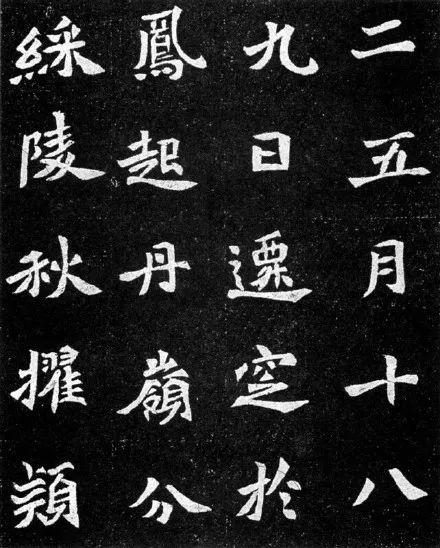 二五月十八
九日遷窆於
鳳起丹嶺分
綵陵秋擢頴